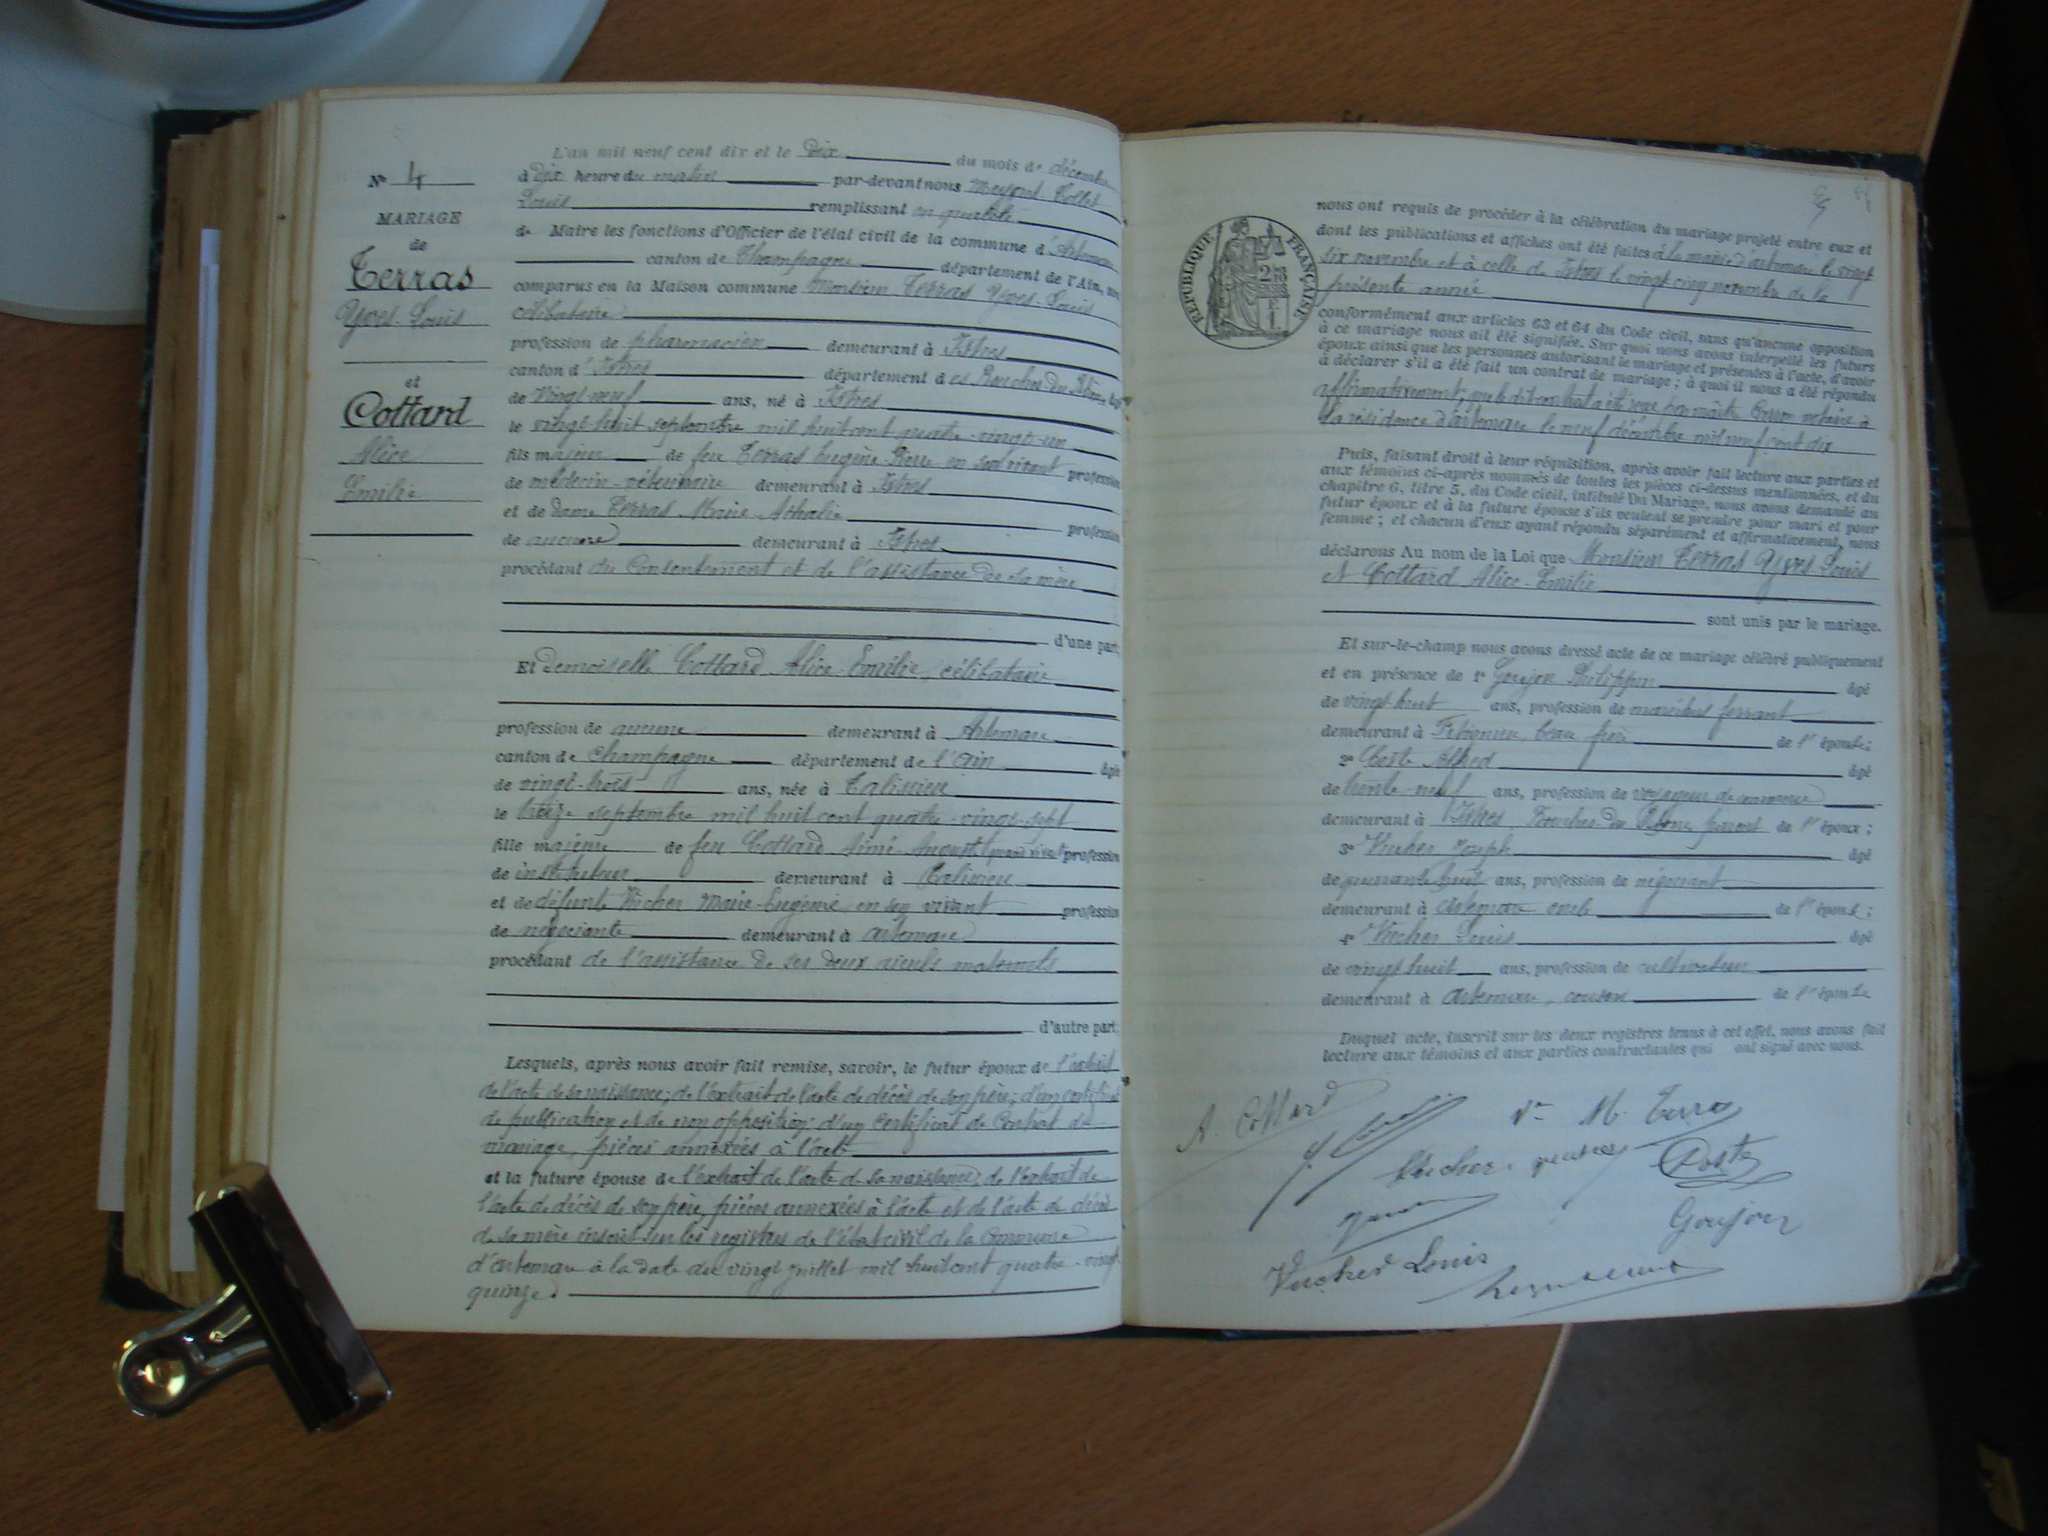 N° 4
MARIAGE
de
Terras
Yves-Louis
et
Cottard
Alice
Emilie
L'an mil neuf cent dix et le dix du mois de décembre
à dix heure du matin par-devant nous Meygret-Collet
Louis remplissant en qualité
de Maire les fonctions d'Officier de l'état civil de la commune d'Artemare
canton de Champagne département de l'Ain, ont
comparus en la Maison commune Monsieur Terras Yves-Louis
célibataire
profession de pharmacien demeurant à Istres
canton d'Istres département des Bouches du Rhône âgé
de vingt-neuf ans, né à Istres
le vingt-huit septembre mil huit cent quatre-vingt-un
fils majeur de feu Terras Eugène Pierre en son vivant profession
de médecin-vétérinaire demeurant à Istres
et de dame Terras Marie Athalie profession
de aucune demeurant à Istres
procédant du consentement et de l'assistance de sa mère
d'une part
Et demoiselle Cottard Alice-Emilie, célibataire
profession de aucune demeurant à Artemare
canton de Champagne département de l'Ain âgée
de vingt-trois ans, née à Talissieu
le treize septembre mil huit cent quatre-vingt-sept
fille majeure de feu Cottard Aimé-Auguste quand vivait profession
de instituteur demeurant à Talissieu
et de défunte Vucher Marie-Eugénie en son vivant profession
de négociante demeurant à Artemare
procédant de l'assistance de ses deux aïeuls maternels
d'autre part
Lesquels, après nous avoir fait remise, savoir, le futur époux de l'extrait
de l'acte de sa naissance; de l'extrait de l'acte de décès de son père; d'un certificat
de publication et de non opposition; d'un certificat de contrat de
mariage, pièces annexées à l'acte
et la future épouse de l'extrait de l'acte de sa naissance, de l'extrait de
l'acte de décès de son père, pièces annexées à l'acte et de l'acte de décès
de sa mère inscrit sur les registres de l'état civil de la commune
d'Artemare à la date du vingt juillet mil huit cent quatre-vingt-
quinze.
RÉPUBLIQUE FRANÇAISE
2
nous ont requis de procéder à la célébration du mariage projeté entre eux et
dont les publications et affiches ont été faites à la mairie d'Artemare le vingt
six novembre et à celle de Istres le vingt cinq novembre de la
présente année
conformément aux articles 63 et 64 du Code civil, sans qu'aucune opposition
à ce mariage nous ait été signifiée. Sur quoi nous avons interpellé les futurs
époux ainsi que les personnes autorisant le mariage et présentes à l'acte, d'avoir
à déclarer s'il a été fait un contrat de mariage; à quoi il nous a été répondu
affirmativement; que le dit contrat a été reçu par maître notaire à
la résidence d'Artemare le neuf décembre mil neuf cent dix
Puis, faisant droit à leur réquisition, après avoir fait lecture aux parties et
aux témoins ci-après nommés de toutes les pièces ci-dessus mentionnées, et du
chapitre 6, titre 5, du Code civil, intitulé Du Mariage, nous avons demandé au
futur époux et à la future épouse s'ils veulent se prendre pour mari et pour
femme; et chacun d'eux ayant répondu séparément et affirmativement, nous
déclarons Au nom de la Loi que Monsieur Terras Yves-Louis
et Cottard Alice-Emilie
sont unis par le mariage.
Et sur-le-champ nous avons dressé acte de ce mariage célébré publiquement
et en présence de 1° Goujon Philippe âgé
de vingt-huit ans, profession de maréchal ferrant
demeurant à beau frère de l'épouse;
2° Coste Alfred âgé
de trente-neuf ans, profession de voyageur de commerce
demeurant à Istres Bouches-du-Rhône parent de l'époux;
3° Vucher Joseph âgé
de quarante huit ans, profession de négociant
demeurant à Artemare oncle de l'épouse;
4° Vucher Louis âgé
de vingt huit ans, profession de cultivateur
demeurant à Artemare, cousin de l'épouse
Duquel acte, inscrit sur les deux registres tenus à cet effet, nous avons fait
lecture aux témoins et aux parties contractantes qui ont signé avec nous.
A. Cottard
Vve M. Terras
Vucher
Coste
Goujon
Vucher Louis